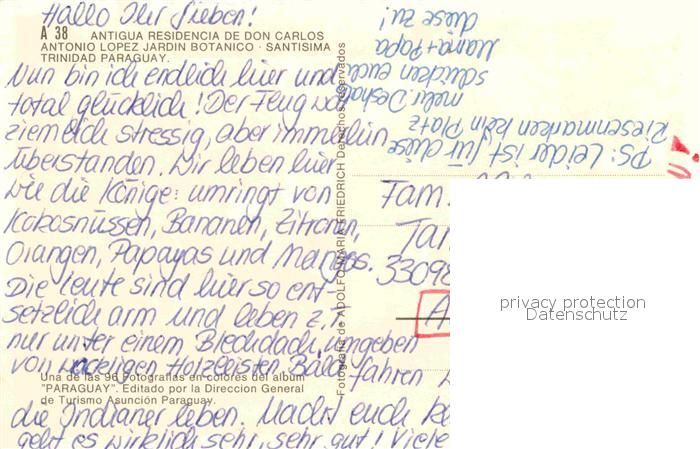 Hallo Ihr Lieben!
A 38 ANTIGUA RESIDENCIA DE DON CARLOS
ANTONIO LOPEZ JARDIN BOTANICO · SANTISIMA
TRINIDAD PARAGUAY.
Nun bin ich endlich hier und
total glücklich! Der Flug war
ziemlich stressig, aber immerhin
überstanden. Wir leben hier
wie die Könige: umringt von
Kokosnüssen, Bananen, Zitronen,
Orangen, Papayas und Mangos.
Die Leute sind hier so ent-
setzlich arm und leben z.T.
nur unter einem Blechdach, umgeben
von wackeligen Holzleisten. Bald fahren
Una de las 96 Fotografias en colores del album
"PARAGUAY". Editado por la Direccion General
de Turismo Asunción Paraguay.
die Indianer leben. Macht euch
geht es wirklich sehr, sehr gut! Viele
Fotografia de ADOLFO MARIA FRIEDRICH Derechos reservados
PS: Leider ist für diese
Riesenmarken kein Platz
mehr. Deshalb
schicken euch
Mama + Papa
diese zu!
Fam.
33098
privacy protection
Datenschutz